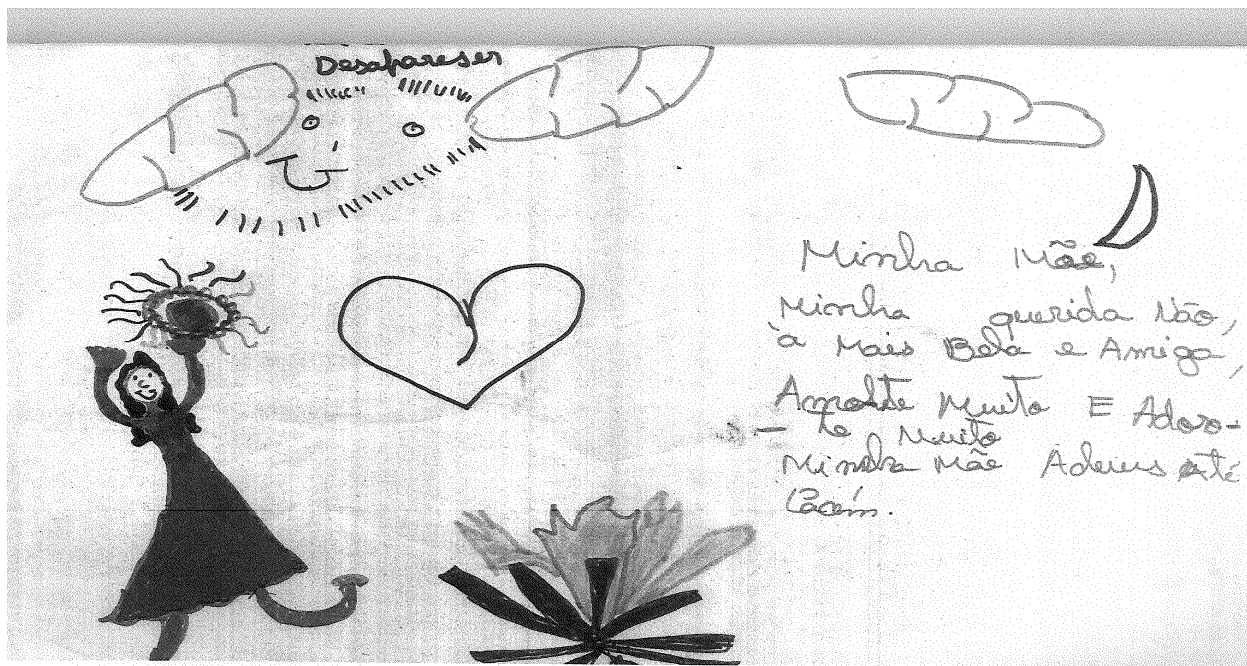 Desapareser
Minha Mãe,
Minha querida Mão,
à Mais Bela e Amiga,
Amo-te Muito E Adoro-
- te Muito
Minha Mãe Adeus até